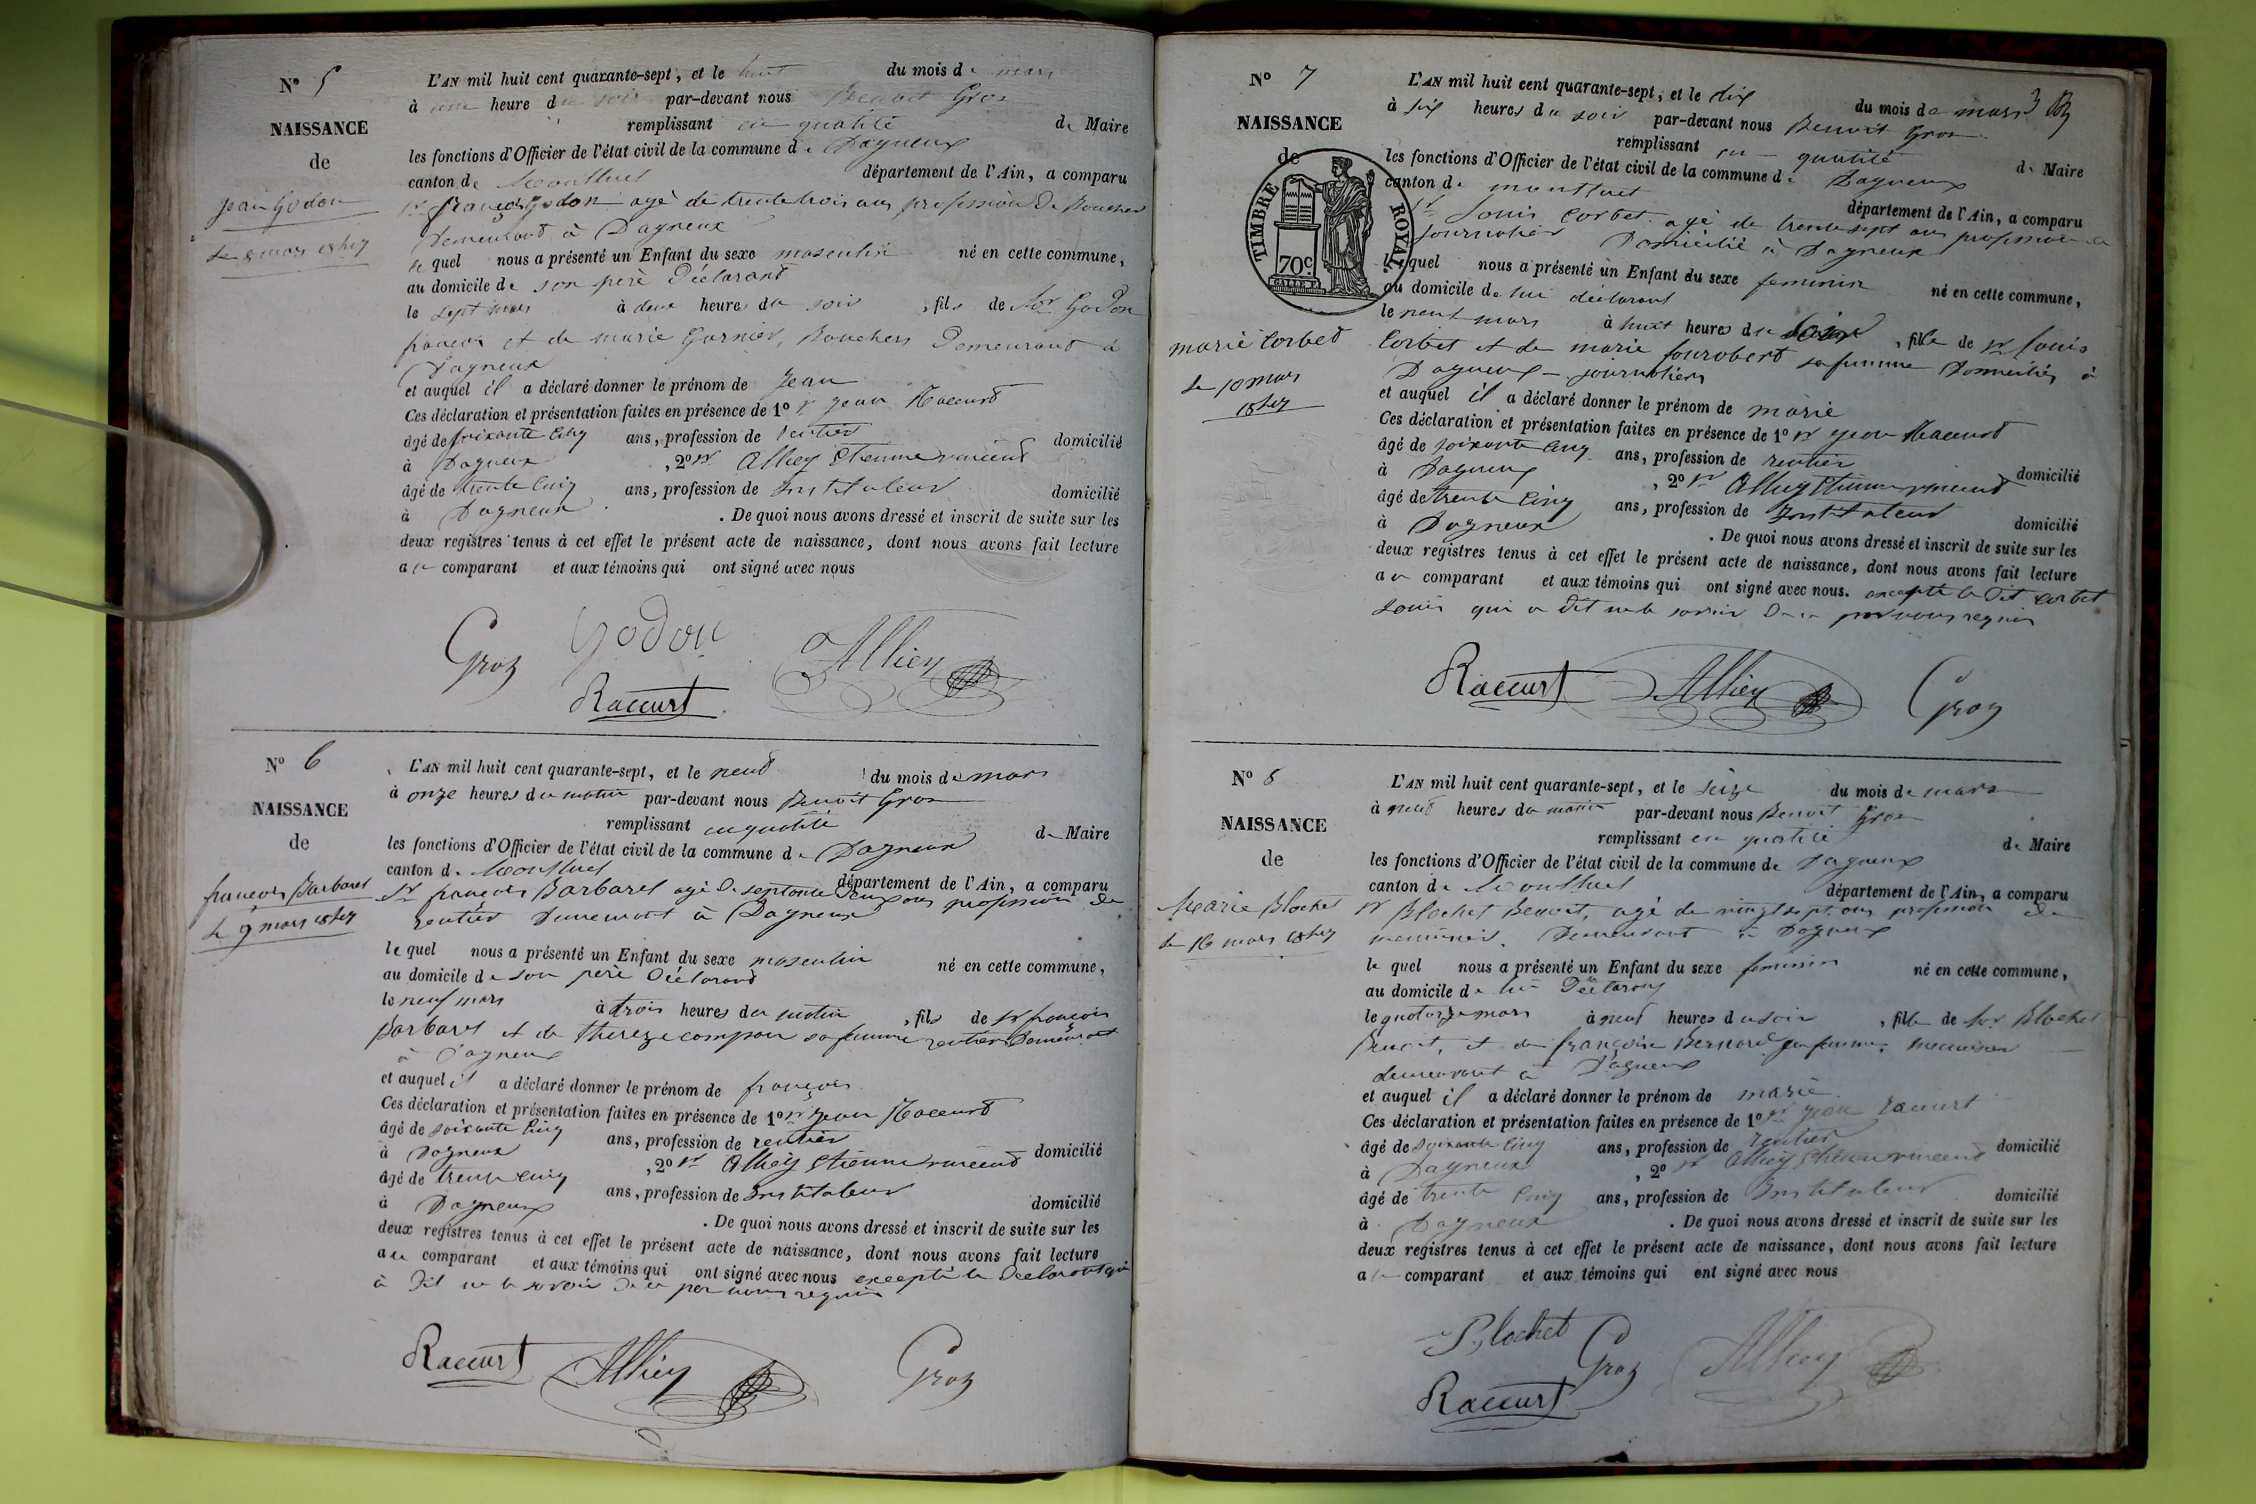 N° 5
NAISSANCE
de
jean Godon
Le 8 mars 1847
L'AN mil huit cent quarante-sept, et le huit du mois de mars
à une heure du soir par-devant nous Benoit Groz
remplissant en qualité de Maire
les fonctions d'Officier de l'état civil de la commune de Dagneux
canton de Montluel département de l'Ain, a comparu
Sr françois Godon agé de trente trois ans profession de Boucher
Demeurant à Dagneux
le quel nous a présenté un Enfant du sexe masculin né en cette commune,
au domicile de son père Déclarant
le sept mars à deux heures du soir, fils de Sr Godon
françois et de marie Garnier, Bouchers Demeurant à
Dagneux
et auquel il a déclaré donner le prénom de Jean
Ces déclaration et présentation faites en présence de 1° Sr jean Raccurt
âgé de soixante cinq ans, profession de rentier domicilié
à Dagneux, 2° Sr Alliey Etienne vincent
âgé de trente cinq ans, profession de Instituteur domicilié
à Dagneux. De quoi nous avons dressé et inscrit de suite sur les
deux registres tenus à cet effet le présent acte de naissance, dont nous avons fait lecture
au comparant et aux témoins qui ont signé avec nous
Groz Godon Alliey
Raccurt
N° 6
NAISSANCE
de
françois Barbaret
Le 9 mars 1847
L'AN mil huit cent quarante-sept, et le neuf du mois de mars
à onze heures du matin par-devant nous Benoit Groz
remplissant en qualité de Maire
les fonctions d'Officier de l'état civil de la commune de Dagneux
canton de Montluel département de l'Ain, a comparu
Sr françois Barbaret agé de septante Deux ans profession de
rentier Demeurant à Dagneux
le quel nous a présenté un Enfant du sexe masculin né en cette commune,
au domicile de son père Déclarant
le neuf mars à trois heures du matin, fils de Sr françois
Barbaret et de thereze sa femme rentiers Demeurant
à Dagneux
et auquel il a déclaré donner le prénom de françois
Ces déclaration et présentation faites en présence de 1° Sr jean Raccurt
âgé de soixante cinq ans, profession de rentier domicilié
à Dagneux, 2° Sr Alliey Etienne vincent
âgé de trente cinq ans, profession de Instituteur domicilié
à Dagneux. De quoi nous avons dressé et inscrit de suite sur les
deux registres tenus à cet effet le présent acte de naissance, dont nous avons fait lecture
au comparant et aux témoins qui ont signé avec nous excepté le Déclarant qui
à Dit ne le savoir De ce par nous requis
Raccurt Alliey Groz
3
N° 7
NAISSANCE
de
TIMBRE ROYAL
70c
marie Corbet
Le 10 mars
1847
L'AN mil huit cent quarante-sept, et le dix du mois de mars
à six heures du soir par-devant nous Benoit Groz
remplissant en qualité de Maire
les fonctions d'Officier de l'état civil de la commune de Dagneux
canton de montluel département de l'Ain, a comparu
Sr Louis Corbet agé de trente sept ans profession de
journalier Domicilié à Dagneux
le quel nous a présenté un Enfant du sexe feminin né en cette commune,
au domicile de lui déclarant
le neuf mars à huit heures du soir, fille de Sr Louis
Corbet et de marie sa femme Domiciliés à
Dagneux journaliers
et auquel il a déclaré donner le prénom de marie
Ces déclaration et présentation faites en présence de 1° Sr jean Raccurt
âgé de soixante cinq ans, profession de rentier domicilié
à Dagneux, 2° Sr Alliey Etienne vincent
âgé de trente cinq ans, profession de Instituteur domicilié
à Dagneux. De quoi nous avons dressé et inscrit de suite sur les
deux registres tenus à cet effet le présent acte de naissance, dont nous avons fait lecture
au comparant et aux témoins qui ont signé avec nous. excepté le Dit Corbet
Louis qui a Dit ne le savoir De ce par nous requis
Raccurt Alliey Groz
N° 8
NAISSANCE
de
Marie Blochet
Le 16 mars 1847
L'AN mil huit cent quarante-sept, et le seize du mois de mars
à neuf heures du matin par-devant nous Benoit Groz
remplissant en qualité de Maire
les fonctions d'Officier de l'état civil de la commune de Dagneux
canton de Montluel département de l'Ain, a comparu
Sr Blochet Benoit, agé de vingt sept ans profession de
menuisier. Demeurant à Dagneux
le quel nous a présenté un Enfant du sexe feminin né en cette commune,
au domicile de lui Déclarant
le quatorze mars à neuf heures du soir, fille de Sr Blochet
Benoit, et de françoise Bernard sa femme. menuisier
demeurant à Dagneux
et auquel il a déclaré donner le prénom de marie
Ces déclaration et présentation faites en présence de 1° Sr jean Raccurt
âgé de soixante cinq ans, profession de rentier domicilié
à Dagneux, 2° Sr Alliey Etienne vincent
âgé de trente cinq ans, profession de Instituteur domicilié
à Dagneux. De quoi nous avons dressé et inscrit de suite sur les
deux registres tenus à cet effet le présent acte de naissance, dont nous avons fait lecture
au comparant et aux témoins qui ont signé avec nous
Blochet Groz Alliey
Raccurt